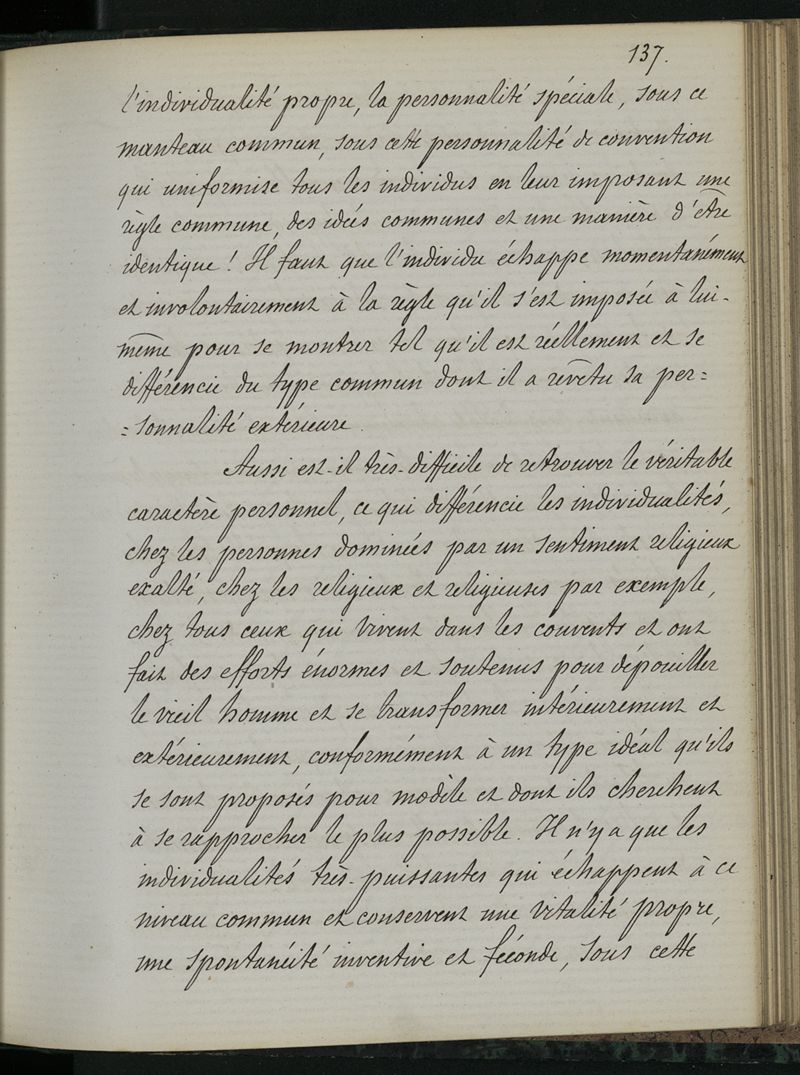 137.
l'individualité propre, la personnalité spéciale, sous ce
manteau commun, sous cette personnalité de convention
qui uniformise tous les individus en leur imposant une
règle commune, des idées communes et une manière d'être
identique ! Il faut que l'individu échappe momentanément
et involontairement à la règle qu'il s'est imposée à lui-
même pour se montrer tel qu'il est réellement et se
différencie du type commun dont il a revêtu sa per=
=sonnalité extérieure.
Aussi est-il très-difficile de retrouver le véritable
caractère personnel, ce qui différencie les individualités,
chez les personnes dominées par un sentiment religieux
exalté, chez les religieux et religieuses par exemple,
chez tous ceux qui vivent dans les couvents et ont
fait des efforts énormes et soutenus pour dépouiller
le vieil homme et se transformer intérieurement et
extérieurement, conformément à un type idéal qu'ils
se sont proposés pour modèle et dont ils cherchent
à se rapprocher le plus possible. Il n'y a que les
individualités très-puissantes qui échappent à ce
niveau commun et conservent une vitalité propre,
une spontanéité inventive et féconde, sous cette